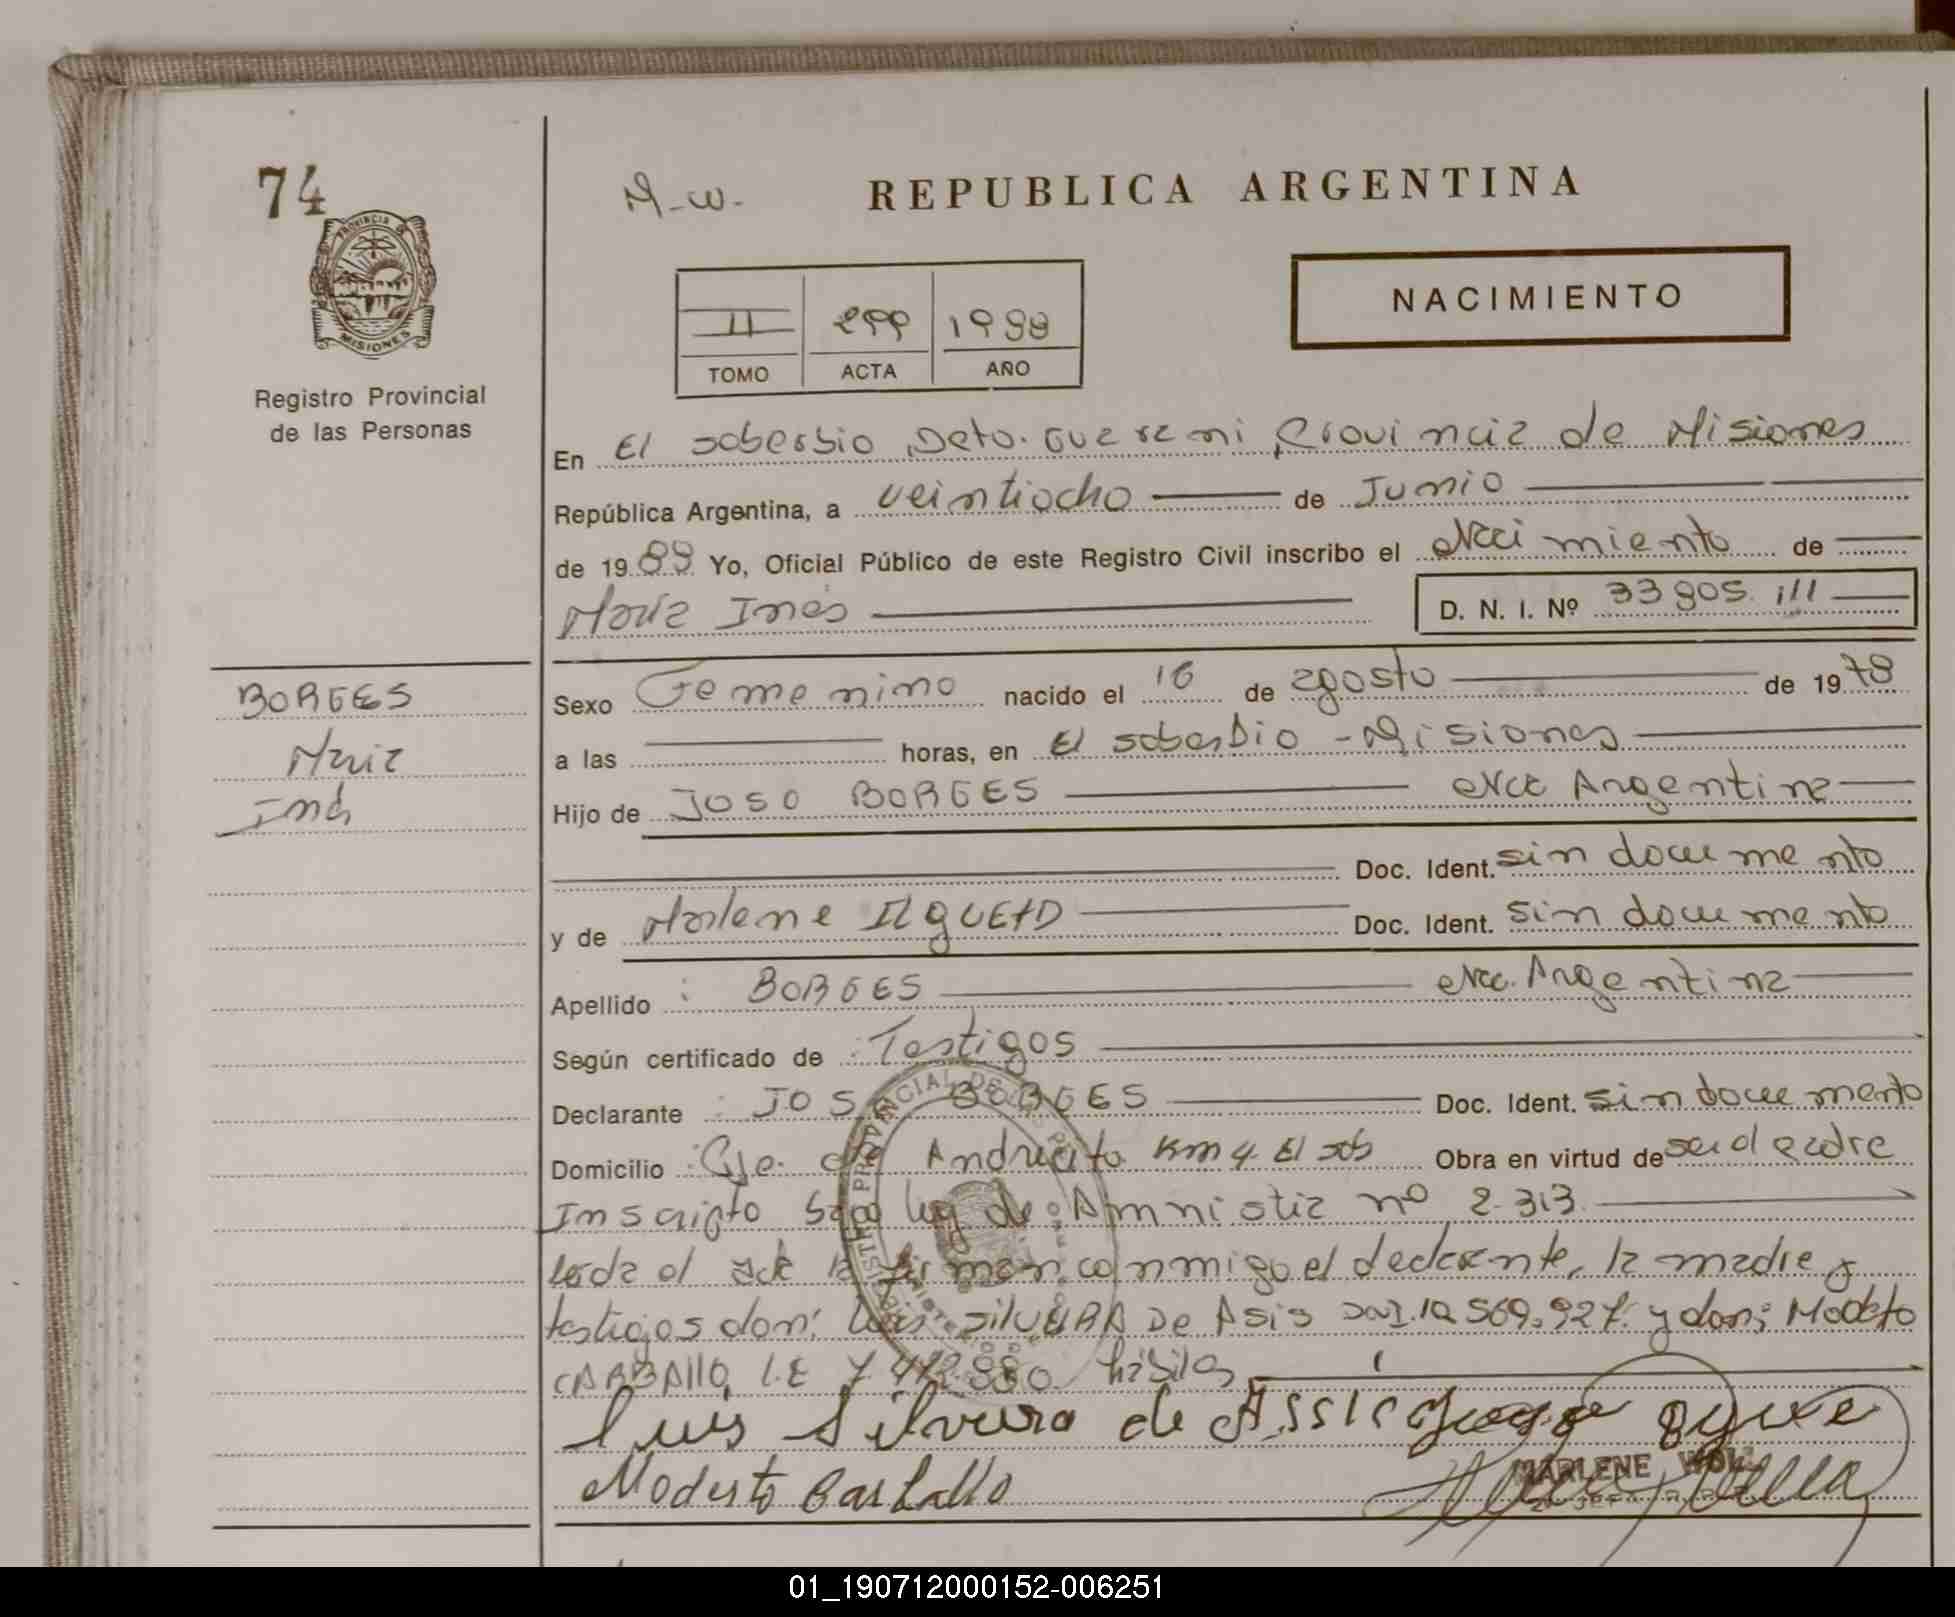 74
M-W-
REPUBLICA ARGENTINA
PROVINCIA DE
MISIONES
Registro Provincial
de las Personas
II 299 1988
TOMO ACTA AÑO
NACIMIENTO
En El soberbio Deto. Guarani, Provincia de Misiones
República Argentina, a veintiocho de Junio
de 1988 Yo, Oficial Público de este Registro Civil inscribo el Naci miento de
María Inés D. N. I. Nº 33 905 111
BORGES
Maria
Inés
Sexo Femenino nacido el 16 de agosto de 1978
a las horas, en El soberbio - Misiones
Hijo de JOSO BORGES Nac Argentina
Doc. Ident. sin documento
y de Marlene Doc. Ident. sin documento
Apellido : BORGES Nac. Argentina
Según certificado de : Testigos
Declarante : BORGES Doc. Ident. sin documento
Domicilio : Cje. Andresito Km 4 El sob Obra en virtud de ser el padre
Inscripto bajo ley de Amnistia nº 2.313.
leida el acta la firman conmigo el declarante, la madre y
testigos don: Luis SILVERA De Asis DNI. 12 569.927. y don; Modesto
CARBALLO, L.E 7.472.880 hábiles
Luis Silvera de Assis
Modesto Carballo
MARLENE
01_190712000152-006251